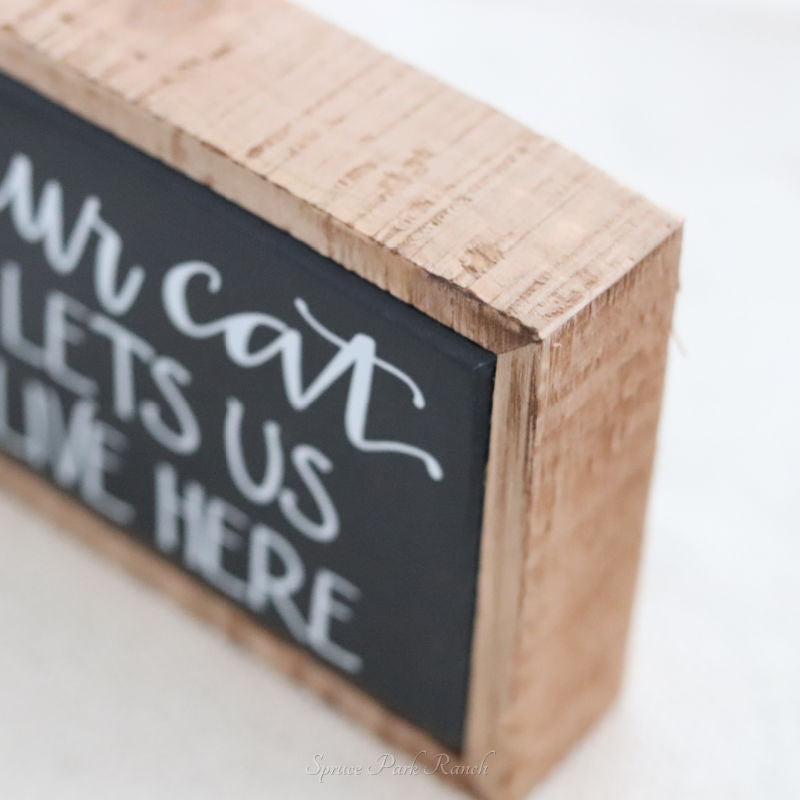 ur cat
LETS US
LIVE HERE
Spruce Park Ranch